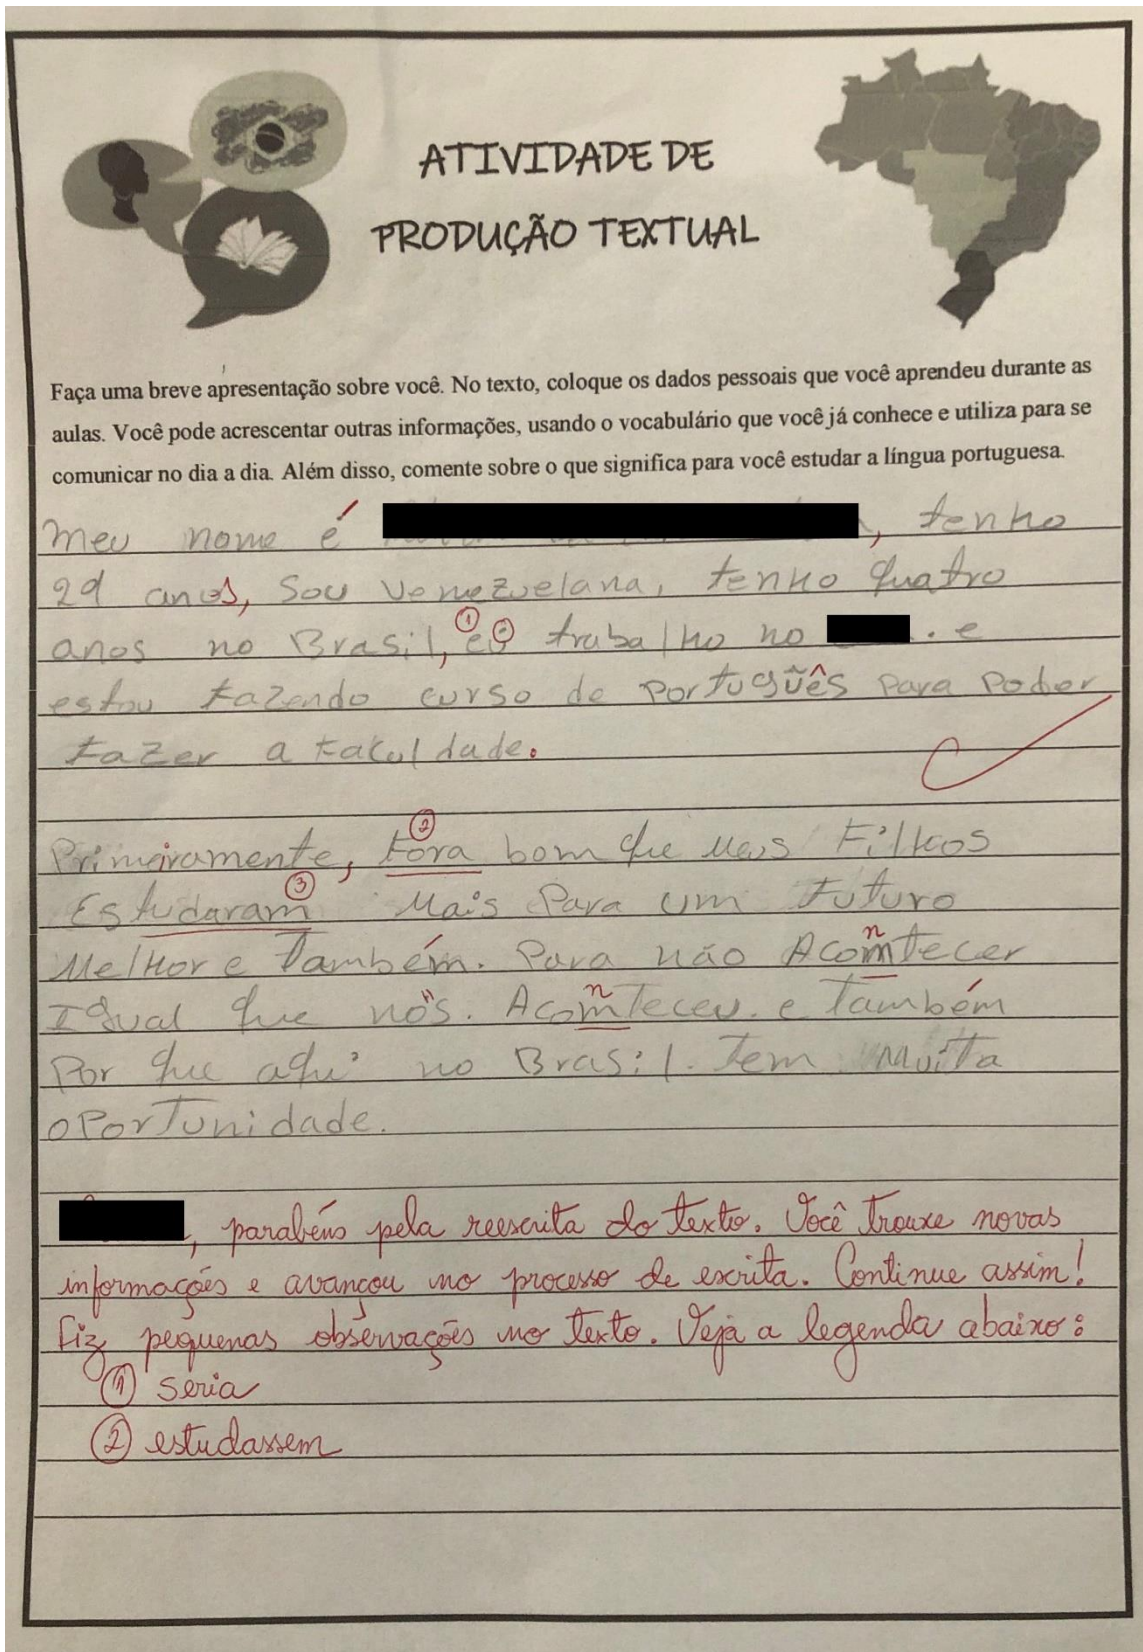 ATIVIDADE DE
PRODUÇÃO TEXTUAL
Faça uma breve apresentação sobre você. No texto, coloque os dados pessoais que você aprendeu durante as
aulas. Você pode acrescentar outras informações, usando o vocabulário que você já conhece e utiliza para se
comunicar no dia a dia. Além disso, comente sobre o que significa para você estudar a língua portuguesa.
Meu nome é , tenho
29 anos, Sou Venezuelana, tenho quatro
①
anos no Brasil, e trabalho no . e
estou fazendo curso de Português para poder
fazer a faculdade.
②
Primeiramente, fora bom que meus Filhos
③
Estudaram Mais Para um Futuro
Melhor e Também. Para não Acomtecer
n
Igual que nós. Acomteceu. e Também
n
Por que aqui no Brasil. Tem Muita
oportunidade.
, parabéns pela reescrita do texto. Você trouxe novas
informações e avançou no processo de escrita. Continue assim!
Fiz pequenas observações no texto. Veja a legenda abaixo:
① seria
② estudassem